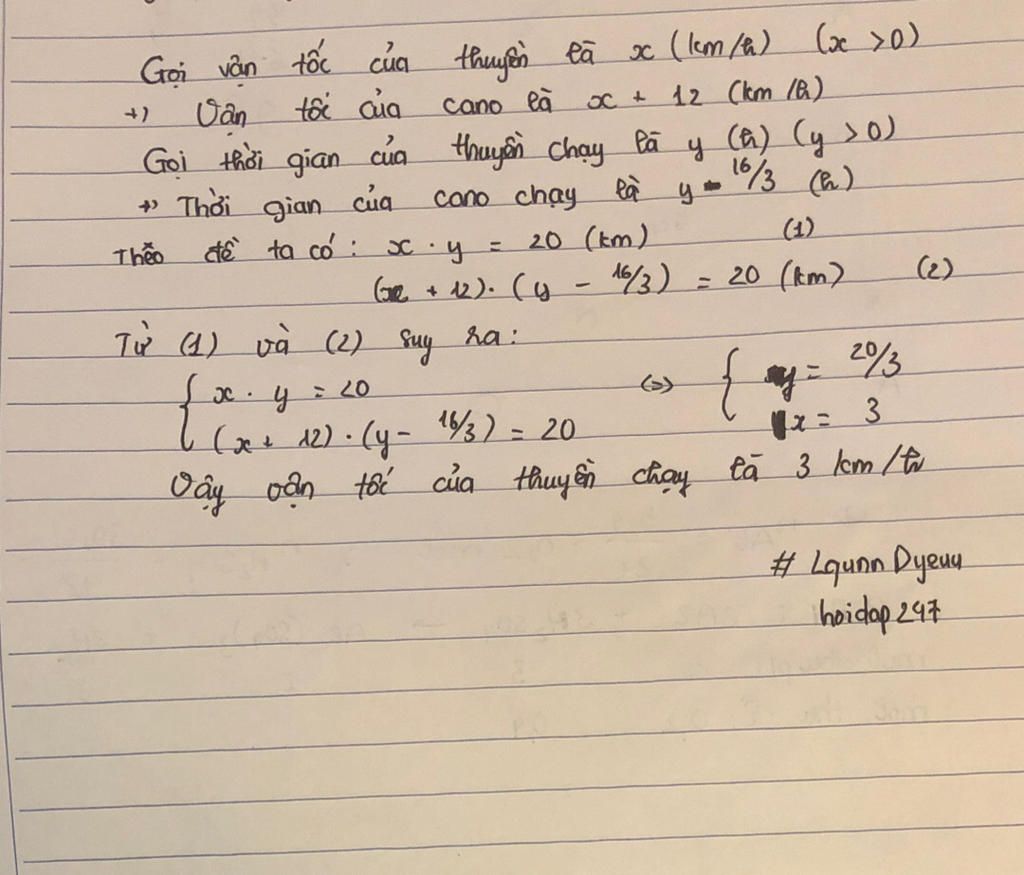 Gọi vận tốc của thuyền là x (km/h) (x > 0)
+) Vận tốc của cano là x + 12 (km/h)
Gọi thời gian của thuyền chạy là y (h) (y > 0)
+) Thời gian của cano chạy là y - 16/3 (h)
Theo đề ta có: x . y = 20 (km) (1)
(x + 12). (y - 16/3) = 20 (km) (2)
Từ (1) và (2) suy ra:
{ x . y = 20 <=> { y = 20/3
(x + 12) . (y - 16/3) = 20 x = 3
Vậy vận tốc của thuyền chạy là 3 km/h
# Lqunn Dyeuu
hoidap247